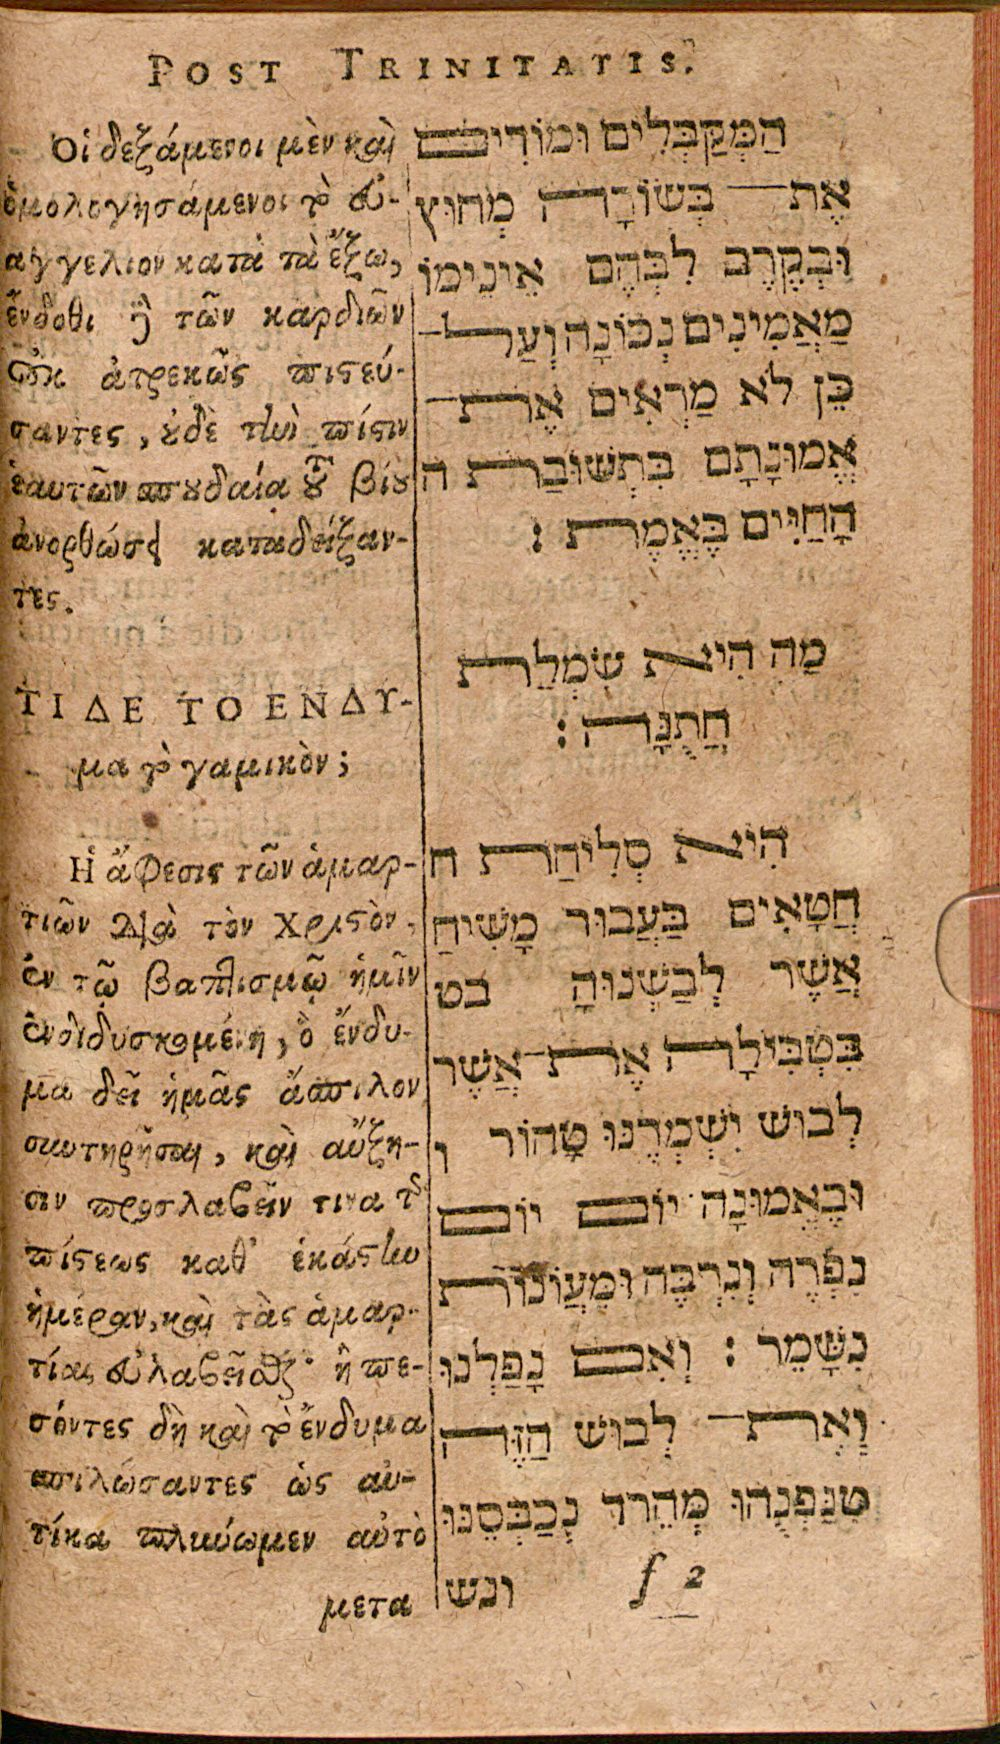 POST TRINITATIS.
Οἱ δεξάμενοι μὲν καὶ
ὁμολογησάμενοι τὸ εὐ-
αγγελιον κατὰ τὰ ἔξω,
ἔνδοθι ἢ τῶν καρδιῶν
οὐκ ἀτρεκῶς πιστεύ-
σαντες, οὐδὲ τὴν πίστιν
ἑαυτῶν σπουδαίᾳ τοῦ βίου
ἀνορθώσει καταδείξαν-
τες.
ΤΙ ΔΕ ΤΟ ΕΝΔΥ-
μα τὸ γαμικὸν;
Ἡ ἄφεσις τῶν ἁμαρ-
τιῶν διὰ τὸν Χριστὸν,
ἐν τῷ βαπτισμῷ ἡμῖν
ἐνδιδυσκομένη, ὃ ἔνδυ-
μα δεῖ ἡμᾶς ἄσπιλον
συντηρῆσαι, καὶ αὔξη-
σιν προσλαβεῖν τινα τῆς
πίστεως καθ' ἑκάστην
ἡμέραν, καὶ τὰς ἁμαρ-
τίας εὐλαβεῖσθαι· ἢ πε-
σόντες δὴ καὶ τὸ ἔνδυμα
σπιλώσαντες ὡς αὐ-
τίκα πλυνωμεν αὐτὸ
μετα
הַמְּקַבְּלִים וּמוֹדִים
אֶת־ בְּשׂוֹרָה מִחוּץ
וּבְקֶרֶב לִבְּהֶם אֵינֵימוֹ
מַאֲמִינִים נְכוֹנָה וְעַל־
כֵּן לֹא מַרְאִים אֶת־
אֱמוּנָתָם בִּתְשׁוּבַת ה
הָחַיִּים בֶּאֱמֶת :
מַה הִיא שִׂמְלַת
חֲתֻנָּה :
הִיא סְלִיחַת ח
חֲטָאִים בַּעֲבוּר מָשִׁיחַ
אֲשֶׁר לְבַשְׁנוּהָ בט
בִּטְבִּילָה אֶת־אֲשֶׁר
לְבוּשׁ יִשְׁמְרֶנּוּ טָהוֹר ו
וּבֶאֱמוּנָה יוֹם יוֹם
נִפְרֶה וְנִרְבֶּה וּמֵעֲוֹנוֹת
נִשָּׁמֵר : וְאִם נָפַלְנוּ
וְאֶת־ לְבוּשׁ הַזֶּה
טִנַּפְנֻהוּ מְהֵרֹ נְכַבְּסֵנּוּ
f 2 ונש